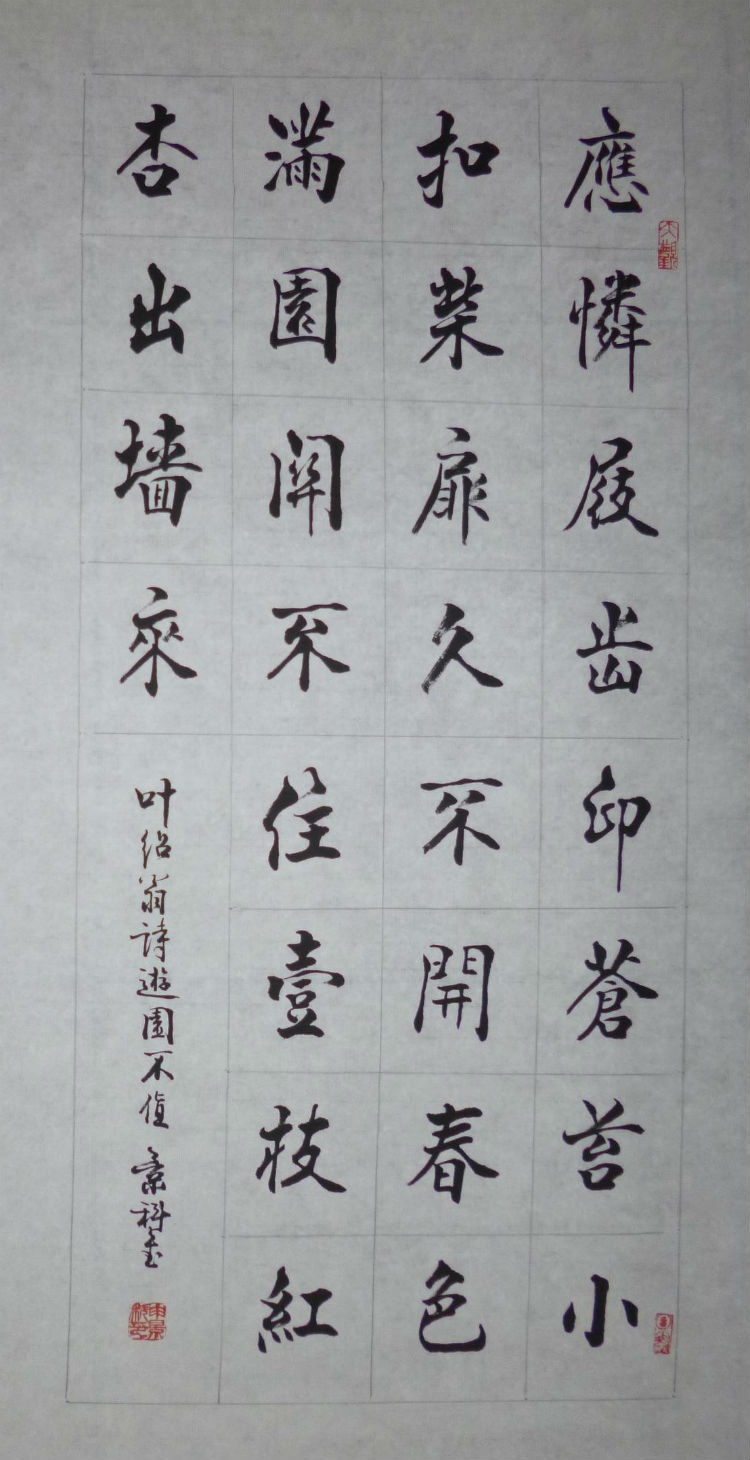 應憐屐齒印蒼苔小
扣柴扉久不開春色
滿園關不住壹枝紅
杏出墻來
叶绍翁詩遊園不值